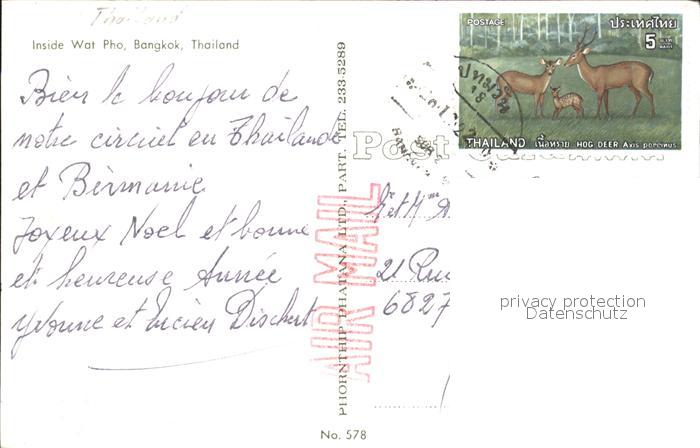 Thailand
Inside Wat Pho, Bangkok, Thailand
Bien le bonjour de
notre circuit en Thailande
et Birmanie
Joyeux Noel et bonne
et heureuse Année
Yvonne et Lucien Dischert
PHORNTHIP PHATANA LTD., PART. TEL. 233-5289
AIR MAIL
No. 578
POSTAGE
ประเทศไทย
5 บาท
BAHT
THAILAND เนื้อทราย HOG DEER Axis porcinus
ปทุมวัน
Post
et Mme
21 Rue
6827
privacy protection
Datenschutz